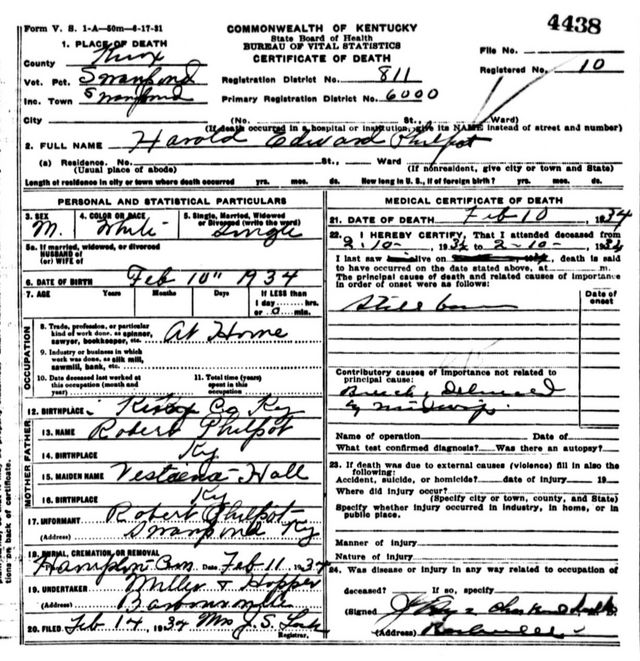 Form V. S. 1-A—50m—6-17-31
COMMONWEALTH OF KENTUCKY
4438
State Board of Health
BUREAU OF VITAL STATISTICS
CERTIFICATE OF DEATH
1. PLACE OF DEATH
County Knox
Vot. Pct. Swanpond
Inc. Town Swanpond
File No.
Registered No. 10
Registration District No. 811
Primary Registration District No. 6000
City (No. St., Ward)
(If death occurred in a hospital or institution, give its NAME instead of street and number)
2. FULL NAME Harold Edward Philpot
(a) Residence. No. St., Ward
(Usual place of abode) (If nonresident, give city or town and State)
Length of residence in city or town where death occurred yrs. mos. ds. How long in U. S., if of foreign birth? yrs. mos. ds.
PERSONAL AND STATISTICAL PARTICULARS
3. SEX M.
4. COLOR OR RACE White
5. Single, Married, Widowed
or Divorced (write the word) Single
5a. If married, widowed, or divorced
HUSBAND of
(or) WIFE of
6. DATE OF BIRTH Feb 10" 1934
7. AGE Years Months Days If LESS than
1 day hrs.
or 0 min.
OCCUPATION
8. Trade, profession, or particular
kind of work done, as spinner,
sawyer, bookkeeper, etc. At Home
9. Industry or business in which
work was done, as silk mill,
sawmill, bank, etc.
10. Date deceased last worked at
this occupation (month and
year)
11. Total time (years)
spent in this
occupation
12. BIRTHPLACE Knox Co Ky
FATHER
13. NAME Robert Philpot
14. BIRTHPLACE Ky
MOTHER
15. MAIDEN NAME Hall
16. BIRTHPLACE Ky
17. INFORMANT Robert Philpot
(Address) Swanpond Ky
18. BURIAL, CREMATION, OR REMOVAL
Hamplin Cem. Date Feb 11 1934
19. UNDERTAKER Miller & Hopper
(Address) Barbourville
20. FILED Feb 14, 1934 Mrs J. S.
Registrar.
MEDICAL CERTIFICATE OF DEATH
21. DATE OF DEATH Feb 10, 1934
22. I HEREBY CERTIFY, That I attended deceased from
2-10-, 1934 to 2-10-, 1934
I last saw alive on death is said
to have occurred on the date stated above, at m.
The principal cause of death and related causes of importance
in order of onset were as follows:
Date of
onset
Still born
Contributory causes of importance not related to
principal cause:
Breech, Delivered
by midwife.
Name of operation Date of
What test confirmed diagnosis? Was there an autopsy?
23. If death was due to external causes (violence) fill in also the
following:
Accident, suicide, or homicide? date of injury 19
Where did injury occur?
(Specify city or town, county, and State)
Specify whether injury occurred in industry, in home, or in
public place.
Manner of injury
Nature of injury
24. Was disease or injury in any way related to occupation of
deceased? If so, specify
(Signed
(Address)
tions on back of certificate.